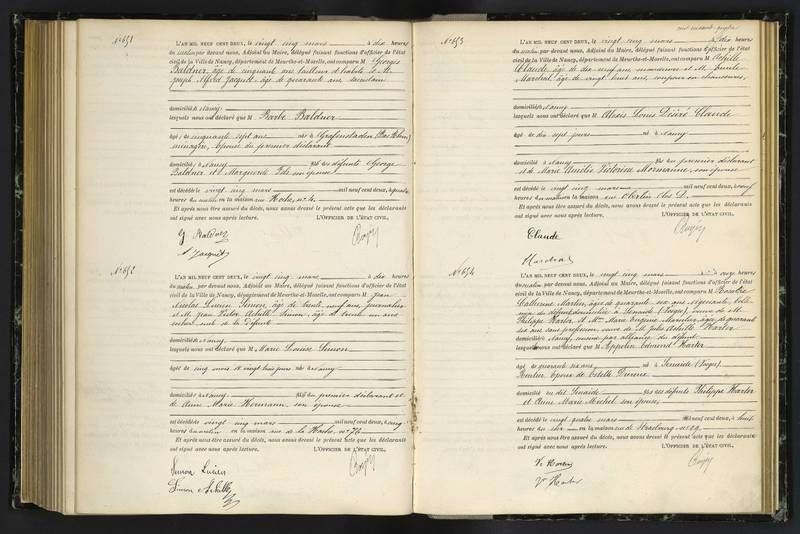 N° 651
L'AN MIL NEUF CENT DEUX, le vingt cinq mars à dix heures
du matin par devant Nous, Adjoint au Maire, délégué faisant fonctions d'officier de l'état
civil de la Ville de Nancy, département de Meurthe-et-Moselle, ont comparu M Georges
Baldner, âgé de cinquante ans, tailleur d'habits et M.
Joseph Alfred Jacquot âgé de quarante ans,
domicilié à Nancy
lesquels nous ont déclaré que M Barbe Baldner
âgée de cinquante sept ans née à Grafenstaden (Bas Rhin)
ménagère, épouse du premier déclarant
domiciliée à Nancy fille des défunts George
Baldner et Marguerite son épouse
est décédée le vingt cinq mars mil neuf cent deux, à quatre
heures du matin en la maison rue n° 4.
Et après nous être assuré du décès, nous avons dressé le présent acte que les déclarants
ont signé avec nous après lecture. L'OFFICIER DE L'ÉTAT CIVIL,
G Baldner
A Jacquot
N° 652
L'AN MIL NEUF CENT DEUX, le vingt cinq mars à dix heures
du matin, par devant Nous, Adjoint au Maire, délégué faisant fonctions d'officier de l'état
civil de la Ville de Nancy, département de Meurthe-et-Moselle, ont comparu M Jean
Nicolas Lucien Simon, âgé de trente neuf ans, journalier
et M. Jean Victor Achille Simon, âgé de trente un ans
oncle de la défunte
domiciliés à Nancy
lesquels nous ont déclaré que M Marie Louise Simon
âgée de cinq mois et vingt huit jours née à Nancy
domiciliée à Nancy fille du premier déclarant et
de Anne Marie Hermann, son épouse
est décédée vingt cinq mars mil neuf cent deux, à cinq
heures du matin en la maison rue de la n° 76
Et après nous être assuré du décès, nous avons dressé le présent acte que les déclarants
ont signé avec nous après lecture. L'OFFICIER DE L'ÉTAT CIVIL,
Simon Lucien
Simon Achille
N° 653
L'AN MIL NEUF CENT DEUX, le vingt cinq mars à dix heures
du matin par devant Nous, Adjoint au Maire, délégué faisant fonctions d'officier de l'état
civil de la Ville de Nancy, département de Meurthe-et-Moselle, ont comparu M Achille
Claude, âgé de dix neuf ans, manœuvre et M. Emile
Marchal, âgé de vingt huit ans, coupeur en chaussures,
domiciliés à Nancy
lesquels nous ont déclaré que M Alexis Louis Désiré Claude
âgé de dix sept jours né à Nancy
domicilié à Nancy fils du premier déclarant
et de Marie Amélie Victorine son épouse
est décédé le vingt cinq mars mil neuf cent deux, à neuf
heures du matin en la maison rue Oberlin
Et après nous être assuré du décès, nous avons dressé le présent acte que les déclarants
ont signé avec nous après lecture. L'OFFICIER DE L'ÉTAT CIVIL,
Claude
Marchal
N° 654
L'AN MIL NEUF CENT DEUX, le vingt cinq mars à onze heures
du matin par devant Nous, Adjoint au Maire, délégué faisant fonctions d'officier de l'état
civil de la Ville de Nancy, département de Meurthe-et-Moselle, ont comparu M Rosalie
Catherine Martin, âgée de quarante six ans, négociante, belle
sœur du défunt domiciliée à Senaide (Vosges), veuve de M.
Philippe Harter et Mme Marie Eugénie âgée de quarante
six ans sans profession, veuve de M. Jules Achille Harter
domiciliée à Nancy, cousine par alliance du défunt
lesquels nous ont déclaré que M Hippolyte Edmond Harter
âgé de quarante six ans né à Senaide (Vosges)
Rentier époux de Estelle
domicilié au dit Senaide fils des défunts Philippe Harter
et Anne Marie Michel son épouse
est décédé le vingt quatre mars mil neuf cent deux, à huit
heures du soir en la maison rue de Strasbourg n° 29
Et après nous être assuré du décès, nous avons dressé le présent acte que les déclarants
ont signé avec nous après lecture. L'OFFICIER DE L'ÉTAT CIVIL,
Ve Harter
Ve Harter